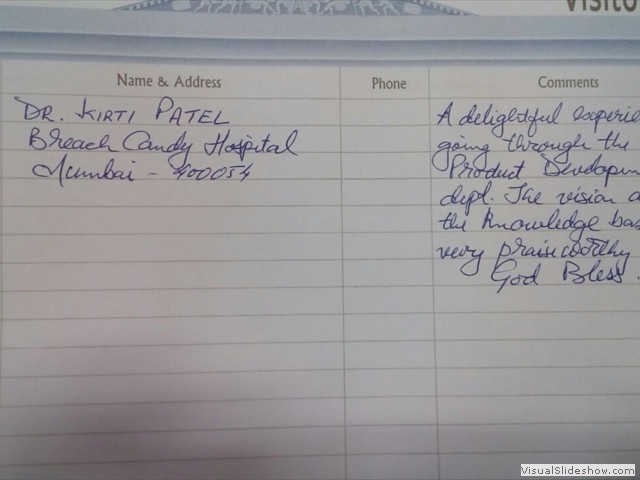 Visito
Name & Address Phone Comments
DR. KIRTI PATEL
Breach Candy Hospital
Mumbai - 400054
A delightful experie
going through the
Product Developm
dept. The vision a
the knowledge bas
very praiseworthy
God Bless.
VisualSlideshow.com